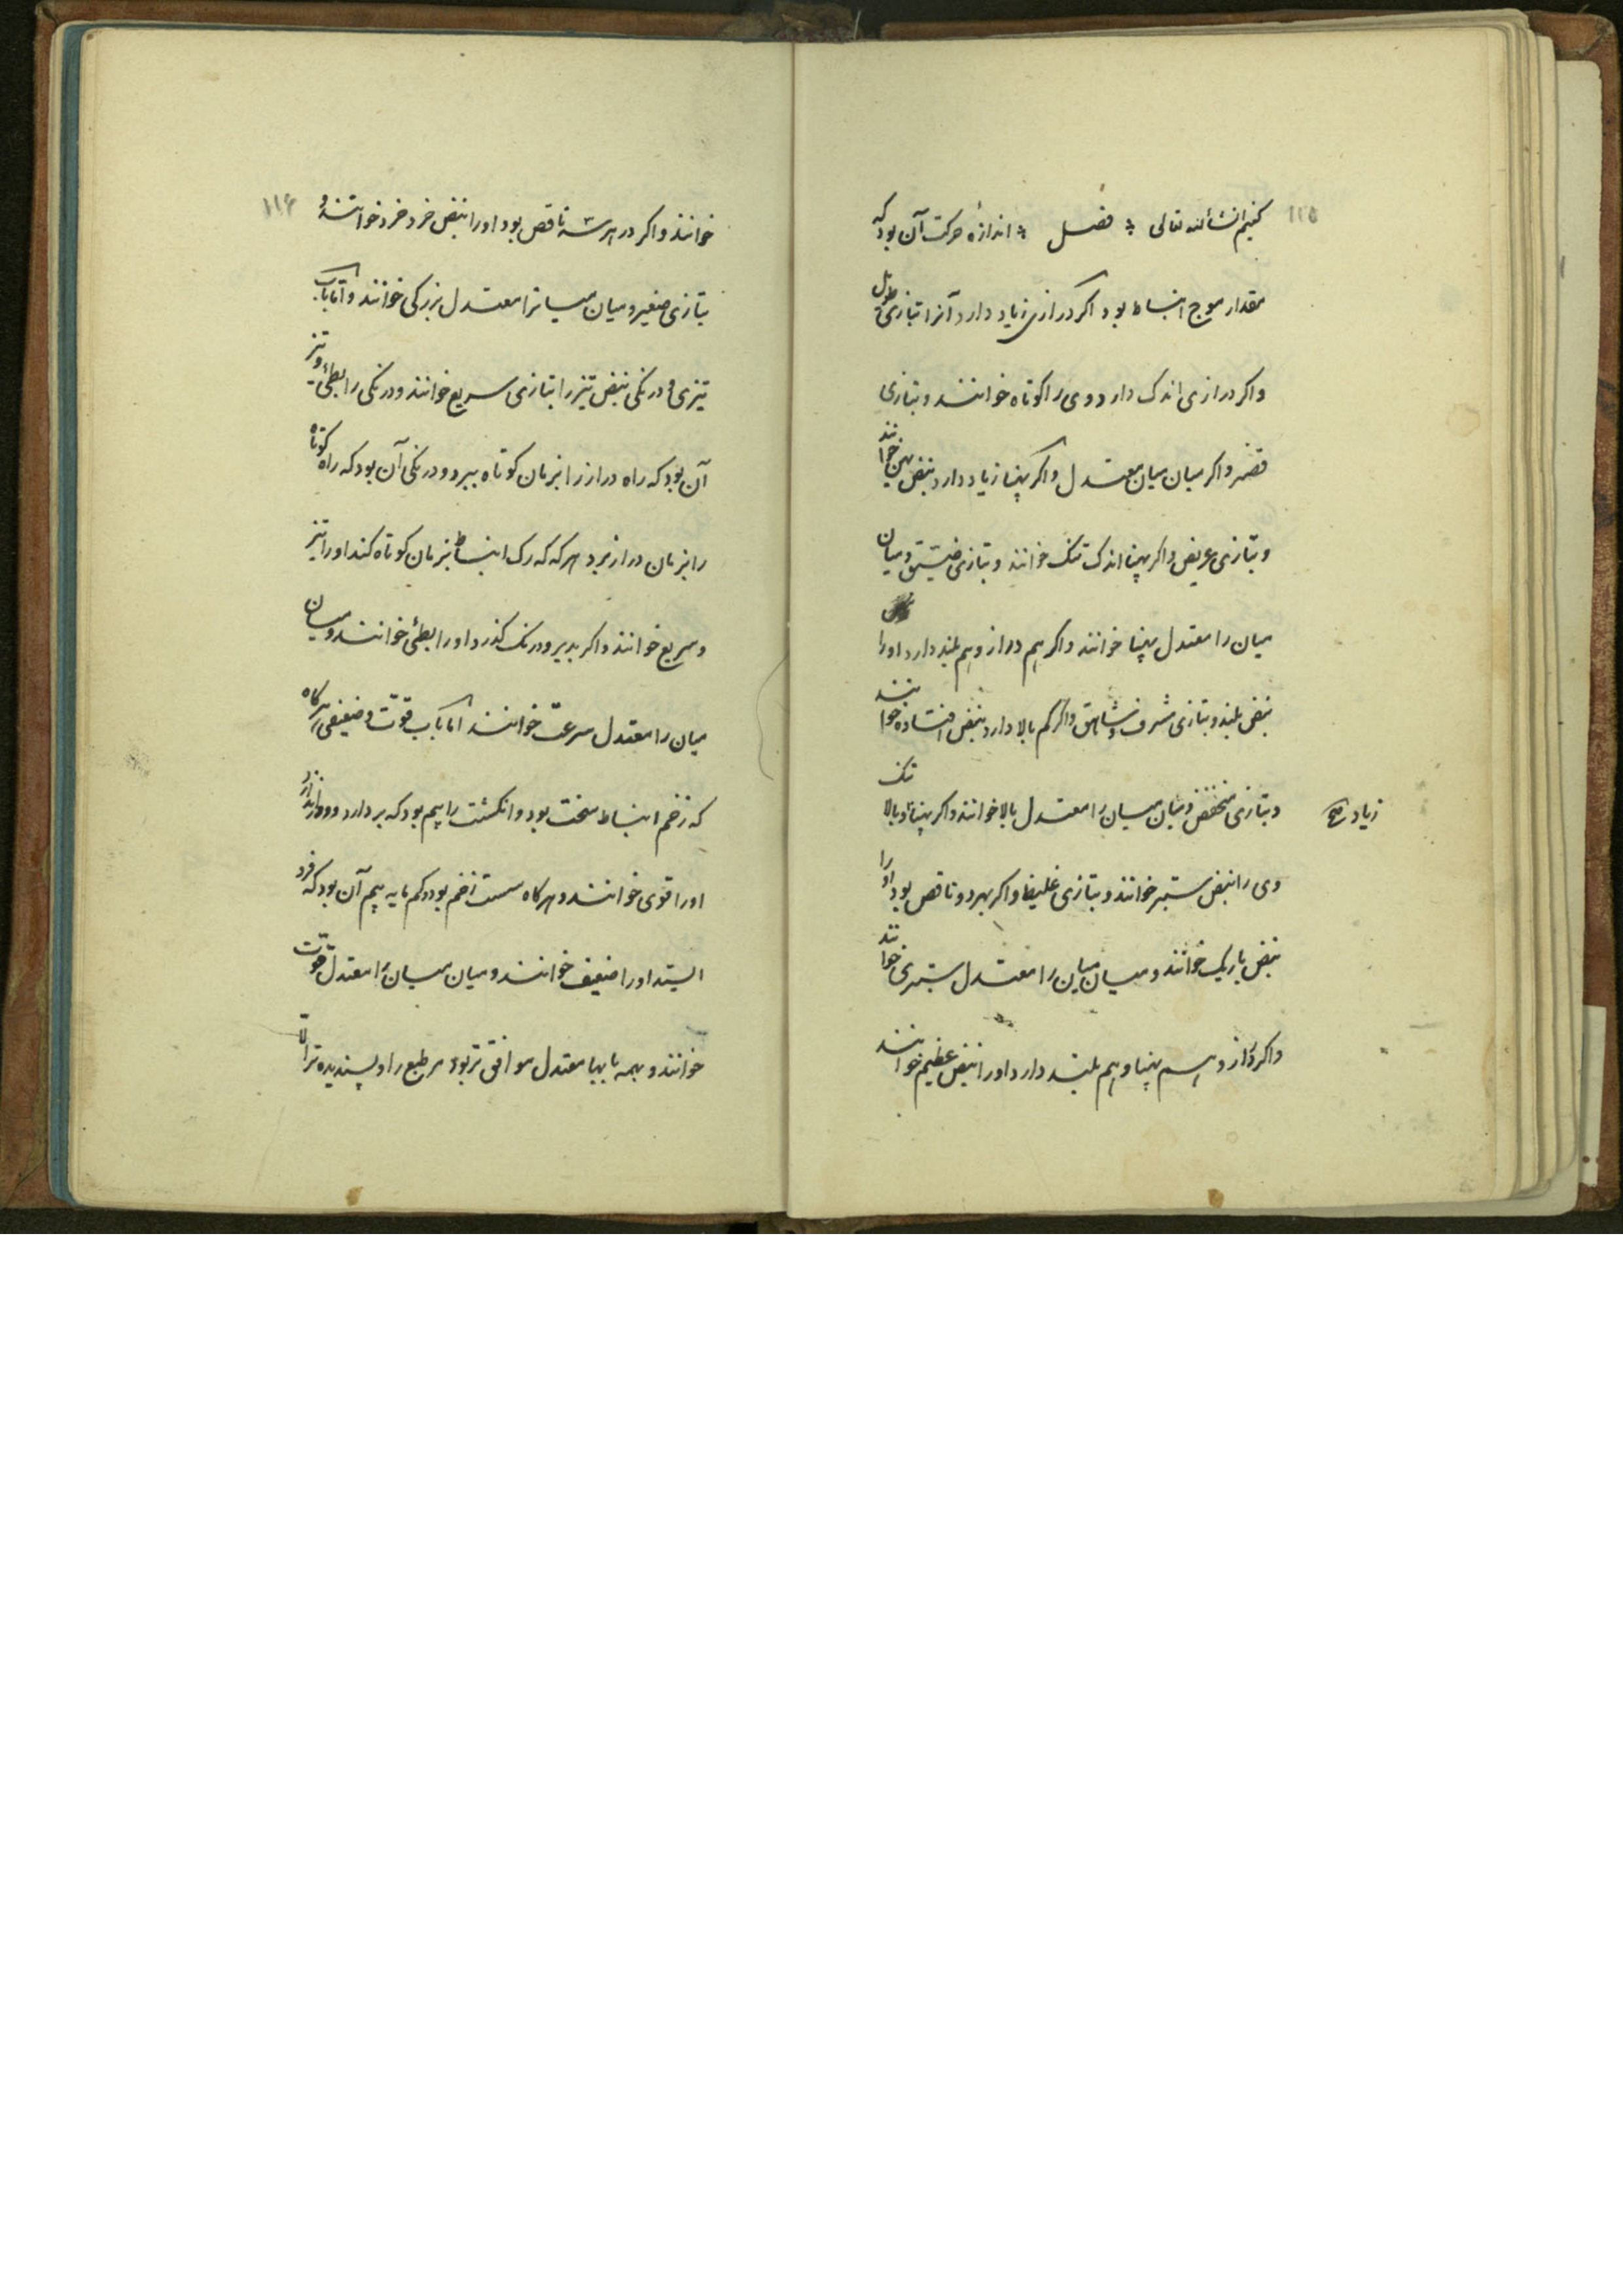 ۱۱۵
کنیم انشأالله تعالی فصل اندازهٔ حرکت آن بود که
مقدار موج انبساط بود اکر درازی زیاد دارد آنرا بتازی طویل
واکر درازی اندک دارد وی را کوتاه خوانند و بتازی
قصیر واکر میان میان معتدل واکر پهنا زیاد دارد نبض پهن خوانند
و بتازی عریض واکر پهنا اندک تنک خوانند و بتازی ضیّق و میان
میان را معتدل پهنا خوانند واکر هم دراز و هم بلند دارد اورا
نبض بلند و بتازی مشرف و شاهق واکر کم بالا دارد نبض افتاده خوانند
و بتازی منخفض و میان میان را معتدل بالا خوانند واکر پهنا و بالا
زیاد صح
وی را نبض ستبر خوانند و بتازی غلیظ واکر بهر دو ناقص بود اورا
نبض باریک خوانند و میان میان را معتدل ستبری خوانند
واکر دراز و هم پهنا و هم بلند دارد اورا نبض عظیم خوانند
۱۱۶
خوانند واکر در هر سه ناقص بود اورا نبض خرد خرد خوانند و
بتازی صغیر و میان میانرا معتدل بزرکی خوانند و اما باب
تیزی و درنکی نبض تیز را بتازی سریع خوانند و درنکی را بطئ و تیز
آن بود که راه دراز را بزمان کوتاه ببرد و درنکی آن بود که راه کوتاه
را بزمان دراز برد هر که که رک انبساط بزمان کوتاه کند اورا تیز
و سریع خوانند واکر بدیر و درنک کذرد اورا بطئ خوانند و میان
میان را معتدل سرعت خوانند اما باب قوّت و ضعیفی هرکاه
که زخم انبساط سخت بود وانکشت را بیم بود که بردارد و دور اندازد
اورا قوی خوانند و هرکاه سست زخم بود و کم مایه بیم آن بود که فرو
ایستد اورا ضعیف خوانند و میان میان را معتدل قوّت
خوانند و بهمه بابها معتدل موافق تر بود مر طبع را و پسندیده تر الّا